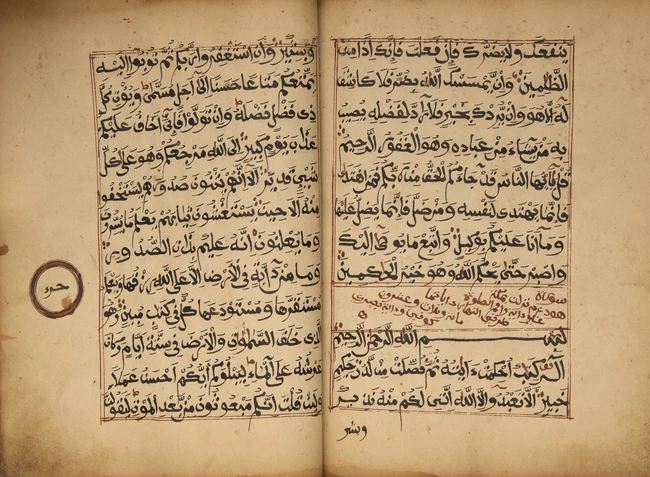 ينفعك ولا يضرك فإن فعلت فإنك إذا من
الظلمين وإن يمسسك الله بضر فلا كاشف
له إلا هو وإن يردك بخير فلا راد لفضله يصيب
به من يشاء من عباده وهو الغفور الرحيم
قل يأيها الناس قد جاءكم الحق من ربكم فمن اهتدى
فإنما يهتدي لنفسه ومن ضل فإنما يضل عليها
وما أنا عليكم بوكيل واتبع ما يوحى إليك
واصبر حتى يحكم الله وهو خير الحكمين
سورة
هود نزلت بمكة
بسم الله الرحمن الرحيم
الر كتب أحكمت ءايته ثم فصلت من لدن حكيم
خبير ألا تعبدوا إلا الله إنني لكم منه نذير
وبشير
وبشير وأن استغفروا ربكم ثم توبوا إليه
يمتعكم متعا حسنا إلى أجل مسمى ويؤت كل
ذي فضل فضله وإن تولوا فإني أخاف عليكم
عذاب يوم كبير إلى الله مرجعكم وهو على كل
شيء قدير ألا إنهم يثنون صدورهم ليستخفوا
منه ألا حين يستغشون ثيابهم يعلم ما يسرون
وما يعلنون إنه عليم بذات الصدور
وما من دابة في الأرض إلا على الله رزقها ويعلم
مستقرها ومستودعها كل في كتب مبين وهو
الذي خلق السموت والأرض في ستة أيام وكان
عرشه على الماء ليبلوكم أيكم أحسن عملا
ولئن قلت إنكم مبعوثون من بعد الموت ليقولن
حزب